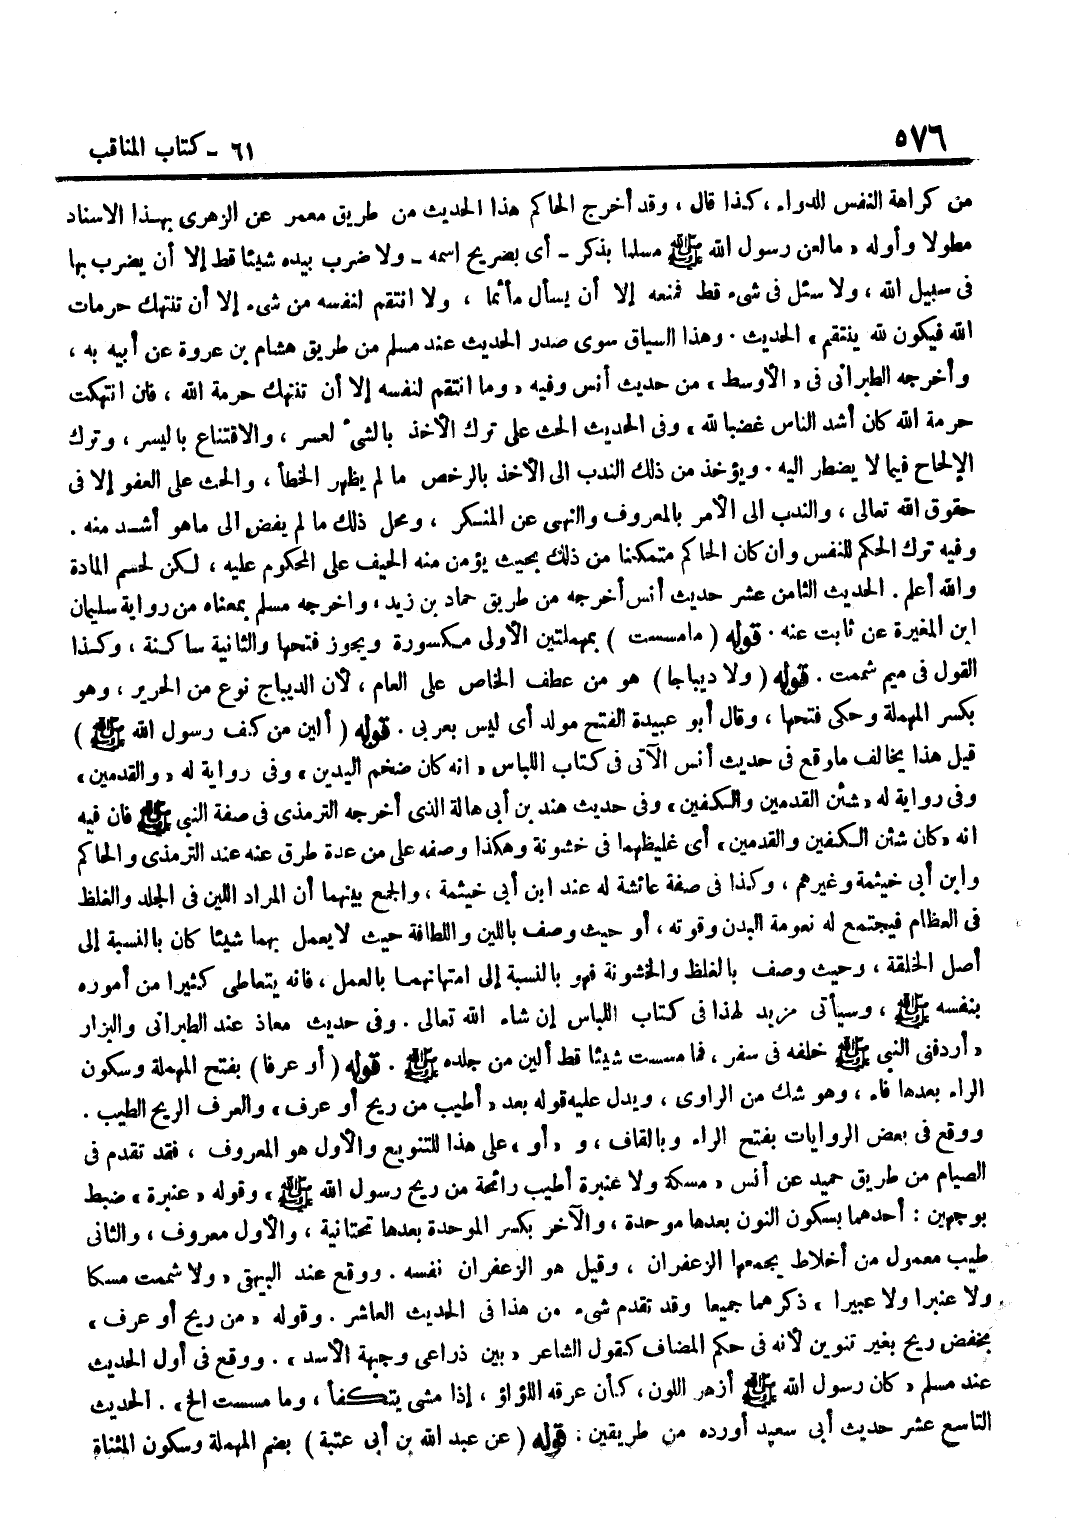 ٥٧٦
٦١ - كتاب المناقب
من كراهة النفس للدواء ، كذا قال ، وقد أخرج الحاكم هذا الحديث من طريق معمر عن الزهرى بهذا الاسناد
مطولا وأوله « مالعن رسول الله ﷺ مسلما بذكر - أى بصريح اسمه - ولا ضرب بيده شيئا قط إلا أن يضرب بها
فى سبيل الله ، ولا سئل فى شىء قط فمنعه إلا أن يسأل مأثما ، ولا انتقم لنفسه من شىء إلا أن تنتهك حرمات
الله فيكون لله ينتقم » الحديث . وهذا السياق سوى صدر الحديث عند مسلم من طريق هشام بن عروة عن أبيه به ،
وأخرجه الطبرانى فى « الأوسط » من حديث أنس وفيه « وما انتقم لنفسه إلا أن تنتهك حرمة الله ، فان انتهكت
حرمة الله كان أشد الناس غضبا لله » وفى الحديث الحث على ترك الأخذ بالشئ لعسر ، والاقتناع باليسر ، وترك
الإلحاح فيما لا يضطر اليه . ويؤخذ من ذلك الندب الى الأخذ بالرخص ما لم يظهر الخطأ ، والحث على العفو إلا فى
حقوق الله تعالى ، والندب الى الأمر بالمعروف والنهى عن المنكر ، ومحل ذلك ما لم يفض الى ماهو أشد منه .
وفيه ترك الحكم للنفس وان كان الحاكم متمكنا من ذلك بحيث يؤمن منه الحيف على المحكوم عليه ، لكن لحسم المادة
والله أعلم . الحديث الثامن عشر حديث أنس أخرجه من طريق حماد بن زيد ، واخرجه مسلم بمعناه من رواية سليمان
ابن المغيرة عن ثابت عنه . قوله ( مامسست ) بمهملتين الأولى مكسورة ويجوز فتحها والثانية ساكنة ، وكذا
القول فى ميم شممت . قوله ( ولا ديباجا ) هو من عطف الخاص على العام ، لأن الديباج نوع من الحرير ، وهو
بكسر المهملة وحكى فتحها ، وقال أبو عبيدة الفتح مولد أى ليس بعربى . قوله ( ألين من كف رسول الله ﷺ )
قيل هذا يخالف ماوقع فى حديث أنس الآتى فى كتاب اللباس « انه كان ضخم اليدين » وفى رواية له « والقدمين »
وفى رواية له « شثن القدمين والكفين » وفى حديث هند بن أبى هالة الذى أخرجه الترمذى فى صفة النبى ﷺ فان فيه
انه « كان شثن الكفين والقدمين » أى غليظهما فى خشونة وهكذا وصفه على من عدة طرق عنه عند الترمذى والحاكم
وابن أبى خيثمة وغيرهم ، وكذا فى صفة عائشة له عند ابن أبى خيثمة ، والجمع بينهما أن المراد اللين فى الجلد والغلظ
فى العظام فيجتمع له نعومة البدن وقوته ، أو حيث وصف باللين واللطافة حيث لا يعمل بهما شيئا كان بالنسبة إلى
أصل الخلقة ، وحيث وصف بالغلظ والخشونة فهو بالنسبة إلى امتهانهما بالعمل ، فانه يتعاطى كثيرا من أموره
بنفسه ﷺ ، وسيأتى مزيد لهذا فى كتاب اللباس إن شاء الله تعالى . وفى حديث معاذ عند الطبرانى والبزار
« أردفنى النبى ﷺ خلفه فى سفر ، فما مسست شيئا قط ألين من جلده ﷺ . قوله ( أو عرفا ) بفتح المهملة وسكون
الراء بعدها فاء ، وهو شك من الراوى ، ويدل عليه قوله بعد « أطيب من ريح أو عرف » والعرف الريح الطيب .
ووقع فى بعض الروايات بفتح الراء وبالقاف ، و « أو » على هذا للتنويع والأول هو المعروف ، فقد تقدم فى
الصيام من طريق حميد عن أنس « مسكة ولا عنبرة أطيب رائحة من ريح رسول الله ﷺ » وقوله « عنبرة » ضبط
بوجهين : أحدهما بسكون النون بعدها موحدة ، والآخر بكسر الموحدة بعدها تحتانية ، والأول معروف ، والثانى
طيب معمول من أخلاط يجمعها الزعفران ، وقيل هو الزعفران نفسه . ووقع عند البيهقى « ولا شممت مسكا
ولا عنبرا ولا عبيرا » ذكرهما جميعا وقد تقدم شىء من هذا فى الحديث العاشر . وقوله « من ريح أو عرف »
بخفض ريح بغير تنوين لأنه فى حكم المضاف كقول الشاعر « بين ذراعى وجبهة الأسد » . ووقع فى أول الحديث
عند مسلم « كان رسول الله ﷺ أزهر اللون ، كأن عرقه اللؤلؤ ، إذا مشى يتكفأ ، وما مسست الخ » . الحديث
التاسع عشر حديث أبى سعيد أورده من طريقين : قوله ( عن عبد الله بن أبى عتبة ) بضم المهملة وسكون المثناة